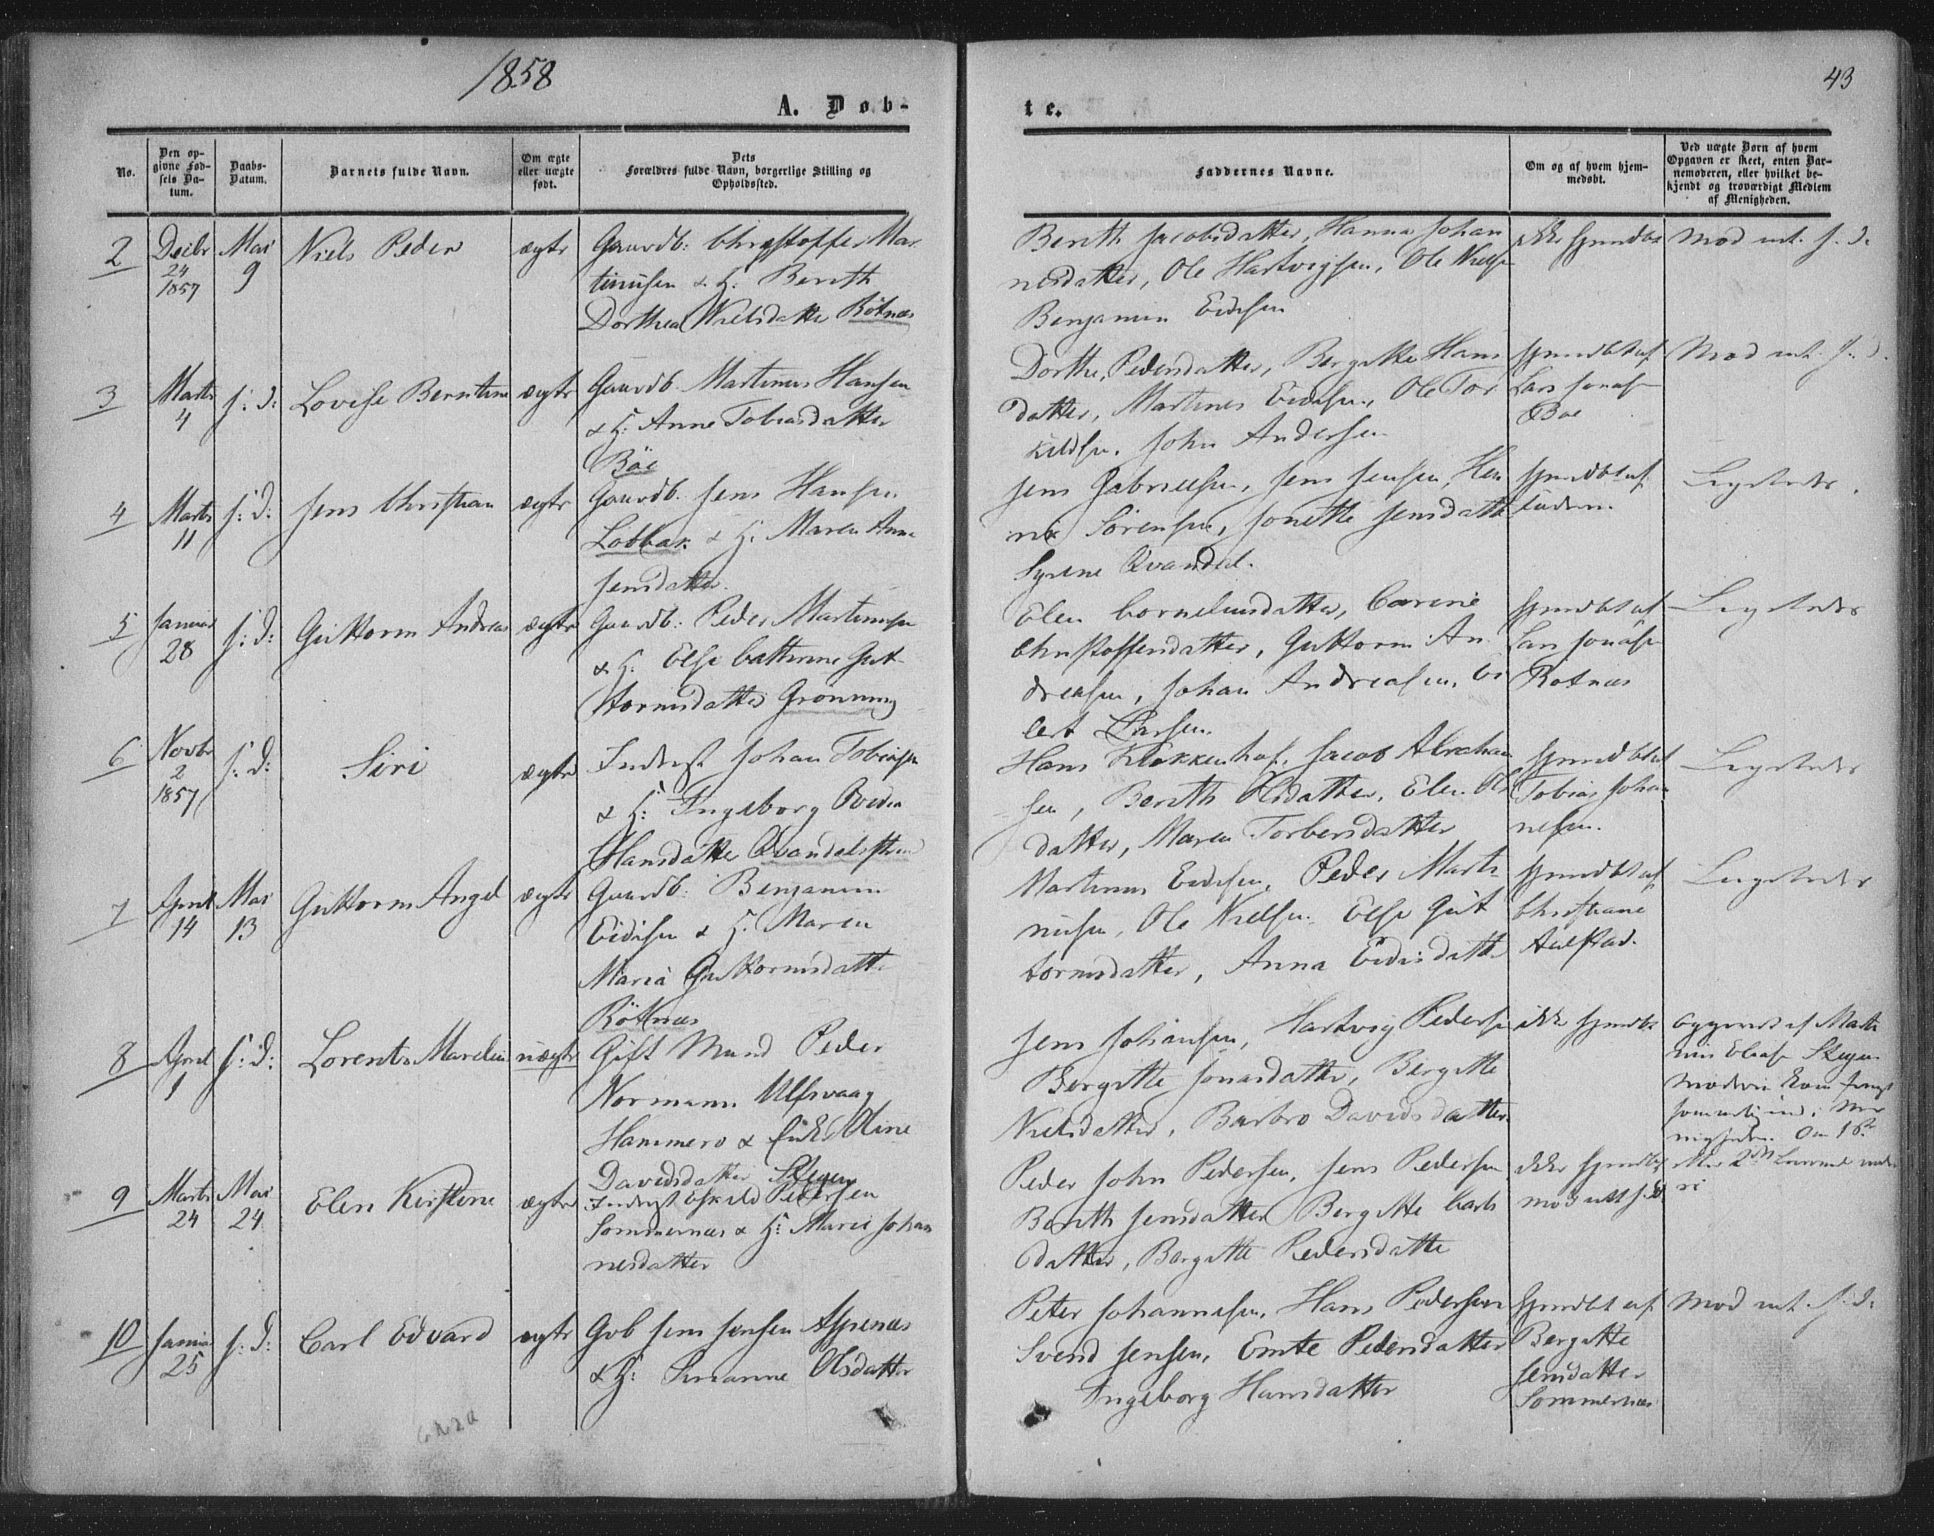 1858
43
A. Døb-
te.
No.
Den op-
givne Fød-
sels Da-
tum.
Daabs-
Datum.
Barnets fulde Navn.
Om ægte
eller uægte
født.
Dets
Forældres fulde Navn, borgerlige Stilling og
Opholdssted.
Faddernes Navne.
Om og af hvem hjem-
medøbt.
Ved uægte Børn af hvem
Opgaven er skeet, enten Bar-
nemoderen, eller hvilket be-
kjendt og troværdigt Medlem
af Menigheden.
2
Decbr
24
1857
Mai
9
Niels Peder
ægte
Gaardb: Christoffer Mar
tinusen & H: Bereth
Dorthea Nielsdatter Rötnæs
Bereth Jacobsdatter, Hanna Johan
nesdatter, Ole Hartvigsen, Ole Niels
Benjamin Eidisen
ikke hjemdbt
Mod ant. s. d.
3
Marts
4
s: d:
Lovise Berntine
ægte
Gaardb Martinus Hansen
& H: Anne Tobiasdatter
Böe
Dorthe Pedersdatter, Bergitte Hans
datter, Martines Eidisen, Ole Tor
kildsen, John Andersen
hjemdbt af
Lars Jonas
Böe
Mod ant. s. d.
4
Marts
11
s: d:
Jens Christian
ægte
Gaardb. Jens Hansen
Lobbak & H: Maren Anne
Jensdatter
Jens Gabrielsen, Jens Jensen, Hen
rik Sörensen, Jonette Jensdatt
Syrene Qvandal.
hjemdbt af
Ligeledes.
5
Januar
28
s: d:
Guttorm Andreas
ægte
Gaardb: Peder Martinusen
& H: Else Cathrine Gut
tormsdatter Grönning
Elen Corneliusdatter, Carine
Christoffersdatter, Guttorm An
dreasen, Johan Andreasen, Ei
lert Larsen
hjemdbt af
Lars Jonas
Rotnæs
Ligeledes
6
Novbr
2
1857
s: d:
Siri
ægte
Inderst Johan Tobiasen
& H: Ingeborg
Hansdatter Qvandalsström
Hans Klokkerhof, Jacob Abraham
sen, Bereth Olsdatter, Elen Ols
datter, Maren Torbersdatter
hjemdbt af
Tobias Johan
nesen.
Ligeledes
7
April
14
Mai
13
Guttorm Angel
ægte
Gaardb. Benjamin
Eidisen & H: Maren
Maria Guttormsdatt.
Rötnæs
Martinus Eidisen, Peder Marti
nusen, Ole Nielsen Else Gut
tormsdatter, Anna Eidisdatt
hjemdbt af
Christiane
Aalstad.
Ligeledes
8
April
1
s: d:
Lorents Marelius
uægte
Gift Mand Peder
Normann Ulfsvaag
Hammerö & Enke Oline
Davidsdatter Skeyen
Jens Johansen, Hartvig Pedersen
Bergitte Jonasdatter, Bergitte
Nielsdatter, Barbro Davidsdatter
ikke hjemdbt
opgivet af Marti
nus Skeyen
9
Marts
24
Mai
24
Elen Kirstine
ægte
Inderst Eskild Pedersen
Sommernæs & H: Maret Johan
nesdatter
Peder John Pedersen, Jens Pedersen
Bereth Jensdatter Bergitte Carls
datter, Bergitte Pedersdatte
ikke hjemdbt
mod att s: d
10
Januar
25
s: d:
Carl Edvard
ægte
Gdb Jens Jensen Aspenæs
& H: Susanne Olsdatter
Peter Johannesen, Hans Pedersen
Svend Jensen, Emte Pedersdatter
Ingeborg Hansdatter
hjemdbt af
Bergitte
Jensdatter
Sommernæs
Mod ant. s: d: